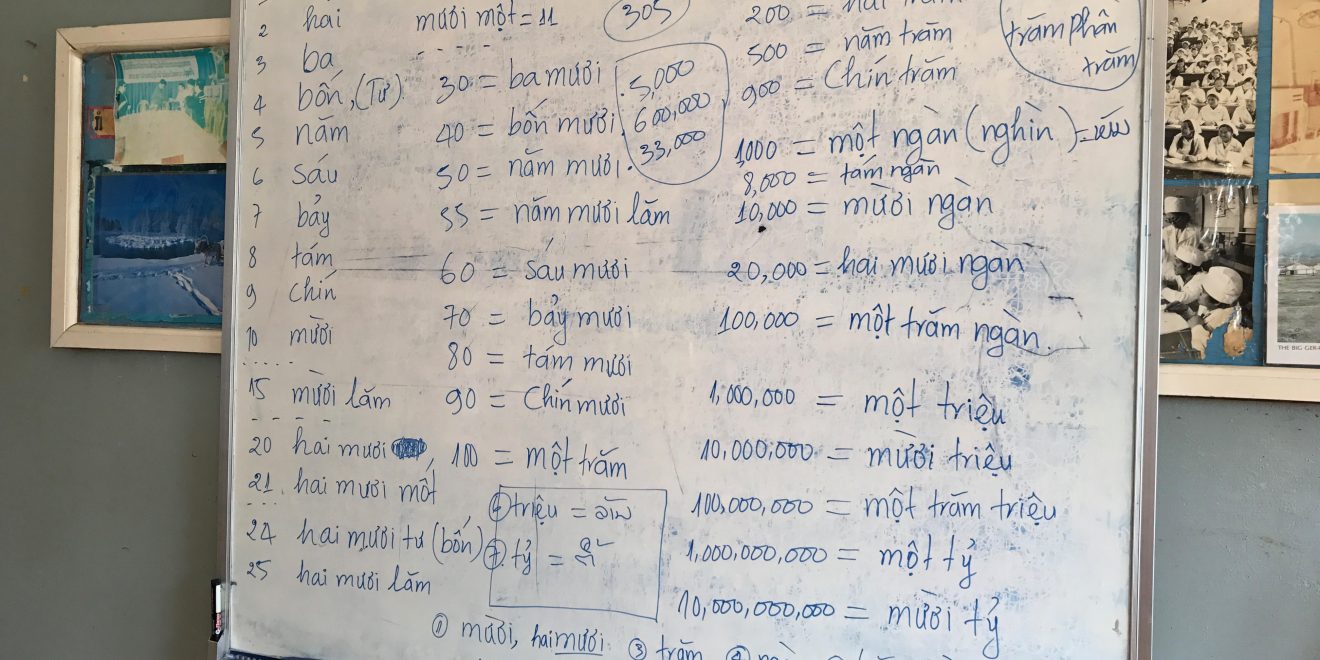 2 hai
3 ba
4 bốn, (Tư)
5 năm
6 sáu
7 bảy
8 tám
9 chín
10 mười
.....
15 mười lăm
- - - -
20 hai mươi
21. hai mươi mốt
- - -
24 hai mươi tư (bốn)
25 hai mươi lăm
mười một = 11
- - - - -
30 = ba mươi
40 = bốn mươi
50 = năm mươi
55 = năm mươi lăm
60 = sáu mươi
70 = bảy mươi
80 = tám mươi
90 = chín mươi
100 = một trăm
305
5,000
600,000
33,000
200 = hai trăm
500 = năm trăm
900 = chín trăm
1,000 = một ngàn (nghìn) =
8,000 = tám ngàn
10,000 = mười ngàn
20,000 = hai mươi ngàn
100,000 = một trăm ngàn.
1,000,000 = một triệu
10,000,000 = mười triệu
100,000,000 = một trăm triệu
1,000,000,000 = một tỷ
10,000,000,000 = mười tỷ
trăm phần
trăm
triệu = ລ້ານ
tỷ =
① mười, hai mươi ③ trăm
THE BIG GER